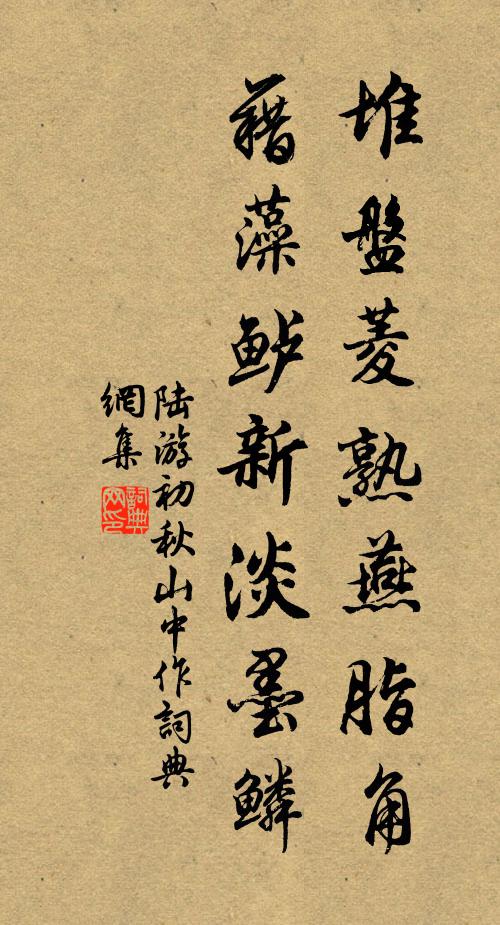 堆盤菱熟燕脂角
藉藻鲈新淡墨鳞
陆游初秋山中作詞典
網集
詞典网印